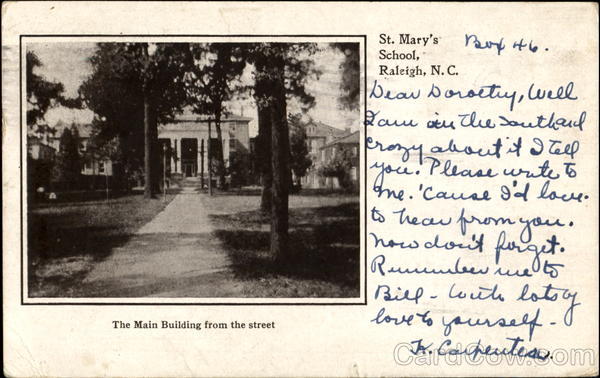 St. Mary's
School,
Raleigh, N. C.
Box 46.
Dear Dorothy, Well
I am in the South and
crazy about it I tell
you. Please write to
me. 'Cause I'd love
to hear from you.
Now don't forget.
Remember me to
Bill - With lots of
love to yourself -
K. Carpenter.
The Main Building from the street
CardCow.com